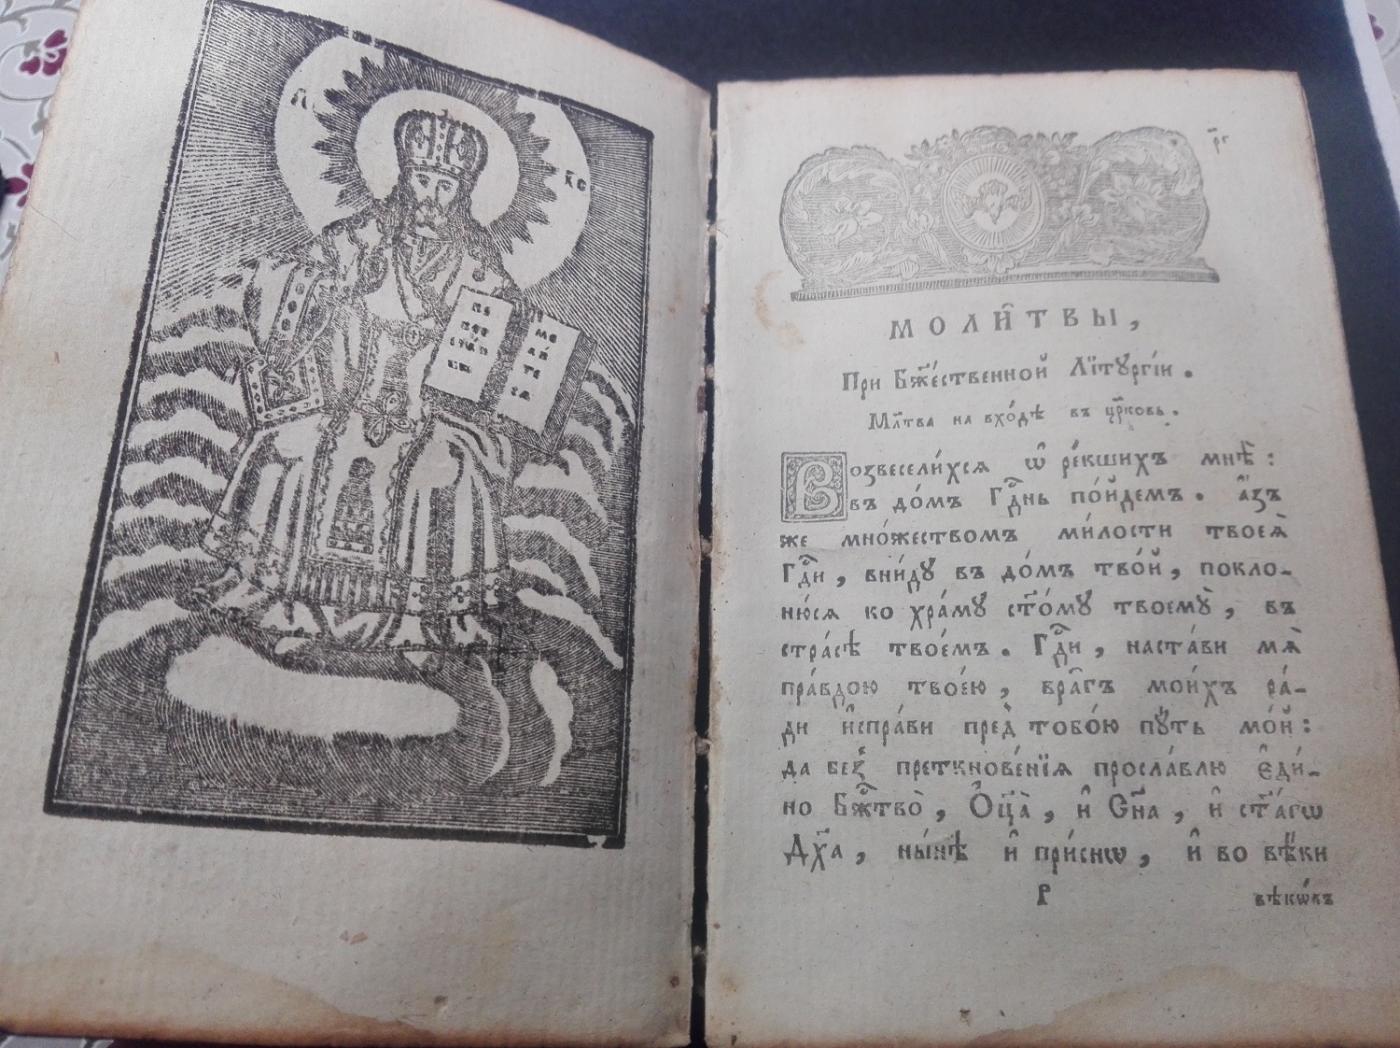 І҃С
Х҃С
р҃г
МОЛИ̑ТВЫ,
При Бж҃е́ственной Лїтꙋргі́и.
Мл҃тва на вхо́дѣ въ цр҃ковь.
Возвесели́хся ѡ҆ ре́кшихъ мнѣ̀:
въ до́мъ Гдⷭ҇нь по́йдемъ. А҆́зъ
же мно́жествомъ ми́лости твоеѧ̀
Гдⷭ҇и, вни́дꙋ въ до́мъ тво́й, покло-
ню́ся ко хра́мꙋ ст҃о́мꙋ твоемꙋ̀, въ
стра́сѣ твое́мъ. Гдⷭ҇и, наста́ви мѧ̀
пра́вдою твое́ю, вра̑гъ мои́хъ ра́-
ди и҆спра́ви пред̾ тобо́ю пꙋ́ть мо́й:
да без̾ преткнове́нїѧ просла́влю є҆ди́-
но Бж҃тво̀, Ѻ҆ц҃а̀, и҆ Сн҃а, и҆ ст҃а́гѡ
Дх҃а, ны́нѣ и҆ при́снѡ, и҆ во вѣ́ки
Р вѣкѡ́въ